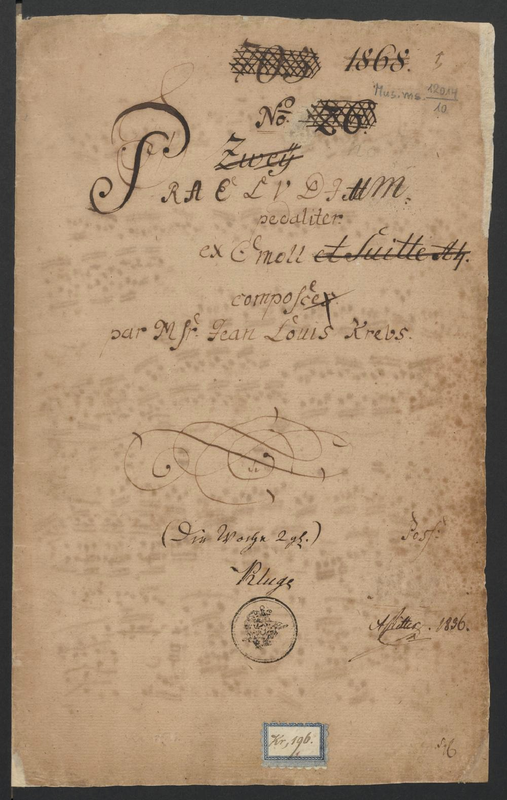 1868.
Mus. ms. 12014/10
No. 26.
Zweÿ
PRAELVDIUM.
pedaliter
ex C moll et Suitte A♮.
compose
par Msr. Jean Louis Krebs.
(Die Woche 2gl.)
Poss:
Kluge
1836.
Kr, 196.